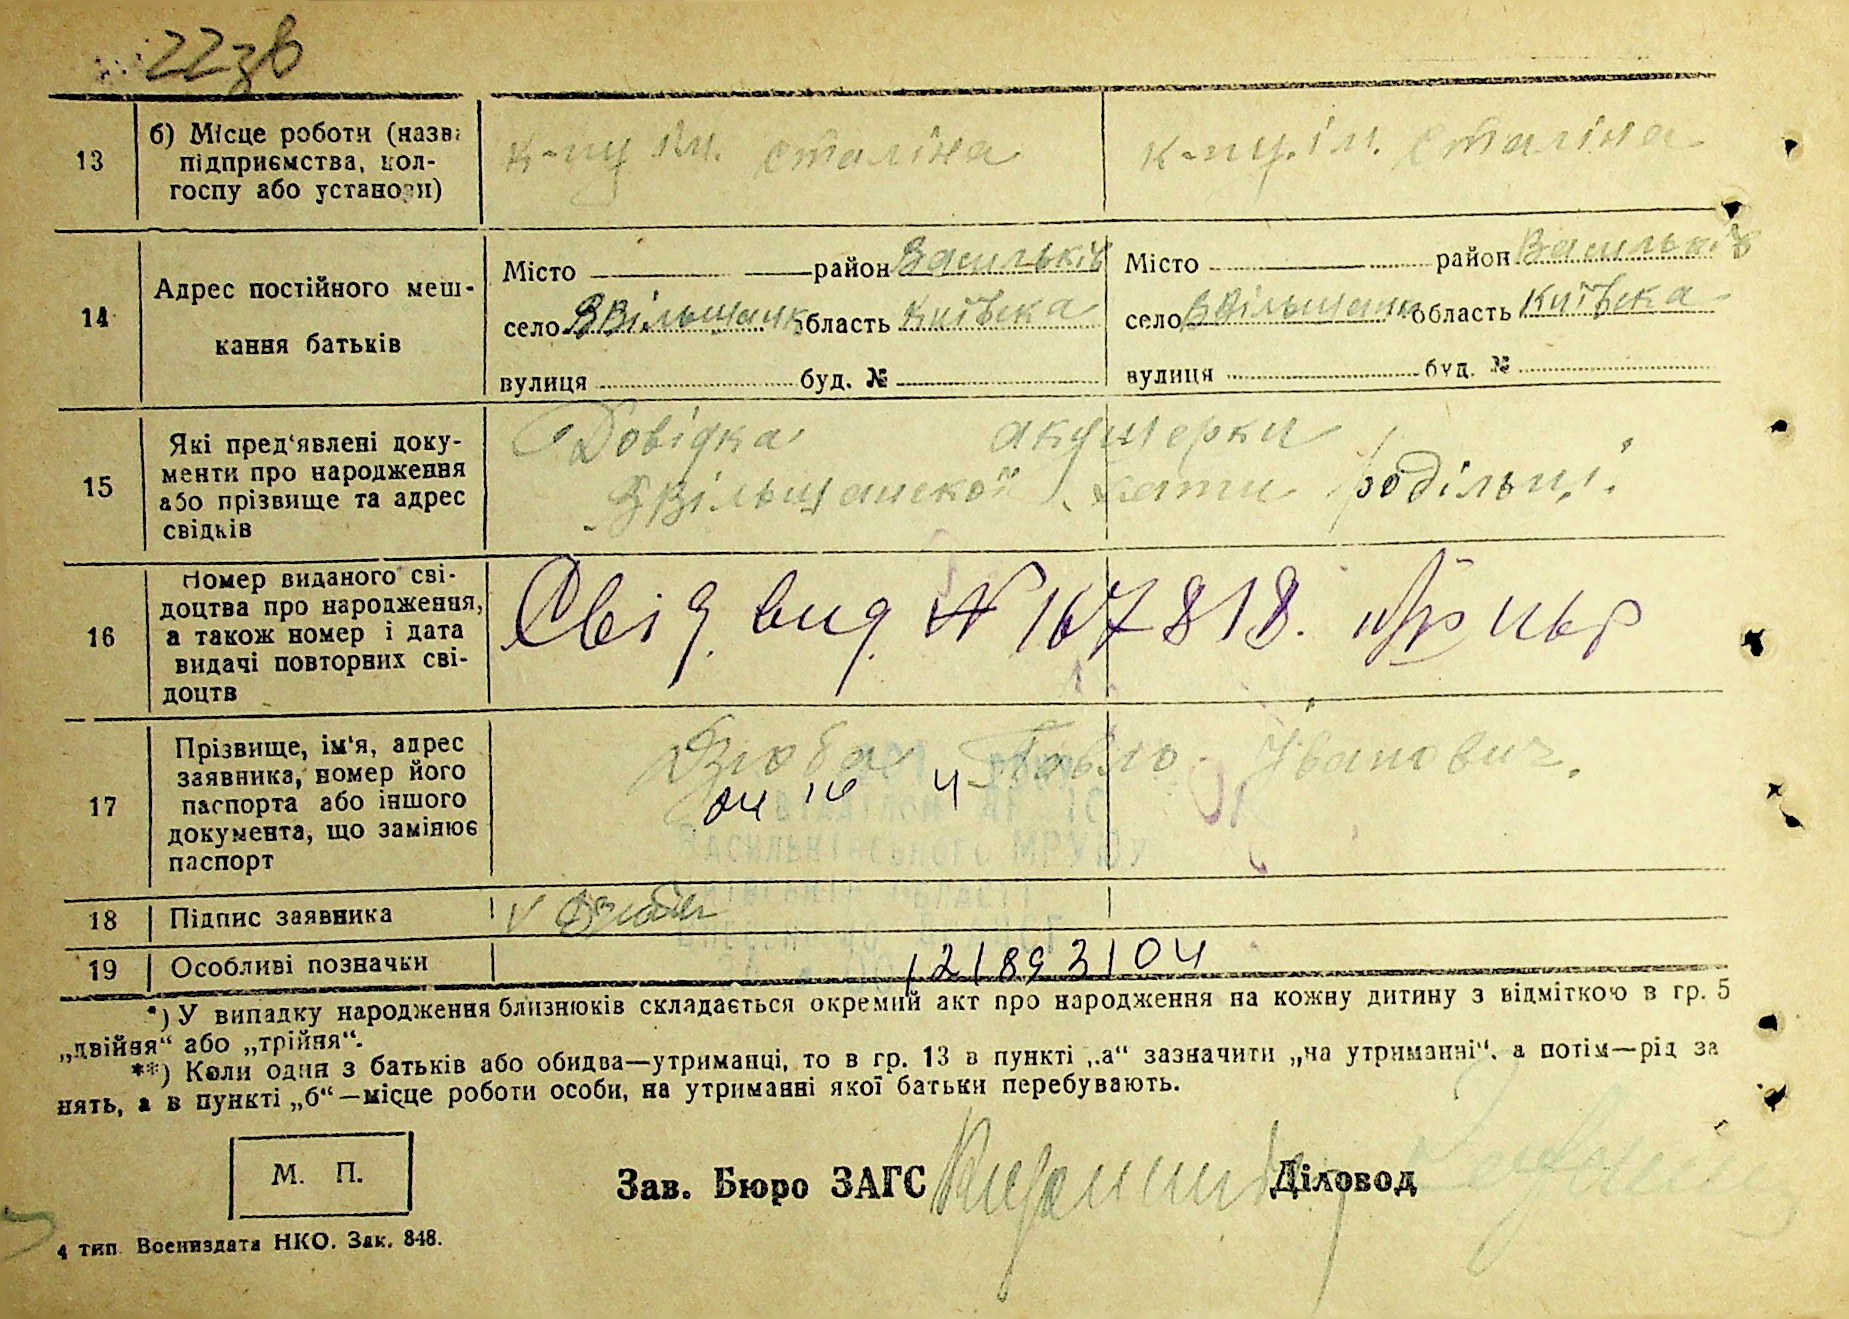 22зв
13 б) Місце роботи (назва підприємства, кол-госпу або установи) к-пу ім. Сталіна к-пу. ім. Сталіна
14 Адрес постійного меш-кання батьків
Місто район Васильків Місто район Васильків
село ВВільшанк область Київска село ВВільшанк область Київска
вулиця буд. № вулиця буд. №
15 Які пред'явлені доку-менти про народження або прізвище та адрес свідків
Довідка акушерки
ВВільшанскої хати родільні.
16 Номер виданого сві-доцтва про народження, а також номер і дата видачі повторних сві-доцтв
Свід. вид. № 167818.
17 Прізвище, ім'я, адрес заявника, номер його паспорта або іншого документа, що замінює паспорт
Дзюба Павло Іванович.
Васильківського МРУЮ
18 Підпис заявника V Дзюба
19 Особливі позначки 121892104
*) У випадку народження близнюків складається окремий акт про народження на кожну дитину з відміткою в гр. 5
„двійня“ або „трійня“.
**) Коли один з батьків або обидва—утриманці, то в гр. 13 в пункті „а“ зазначити „на утриманні“, а потім—рід за
нять, а в пункті „б“—місце роботи особи, на утриманні якої батьки перебувають.
М. П.
Зав. Бюро ЗАГС Діловод
4 тип. Воениздата НКО. Зак. 848.